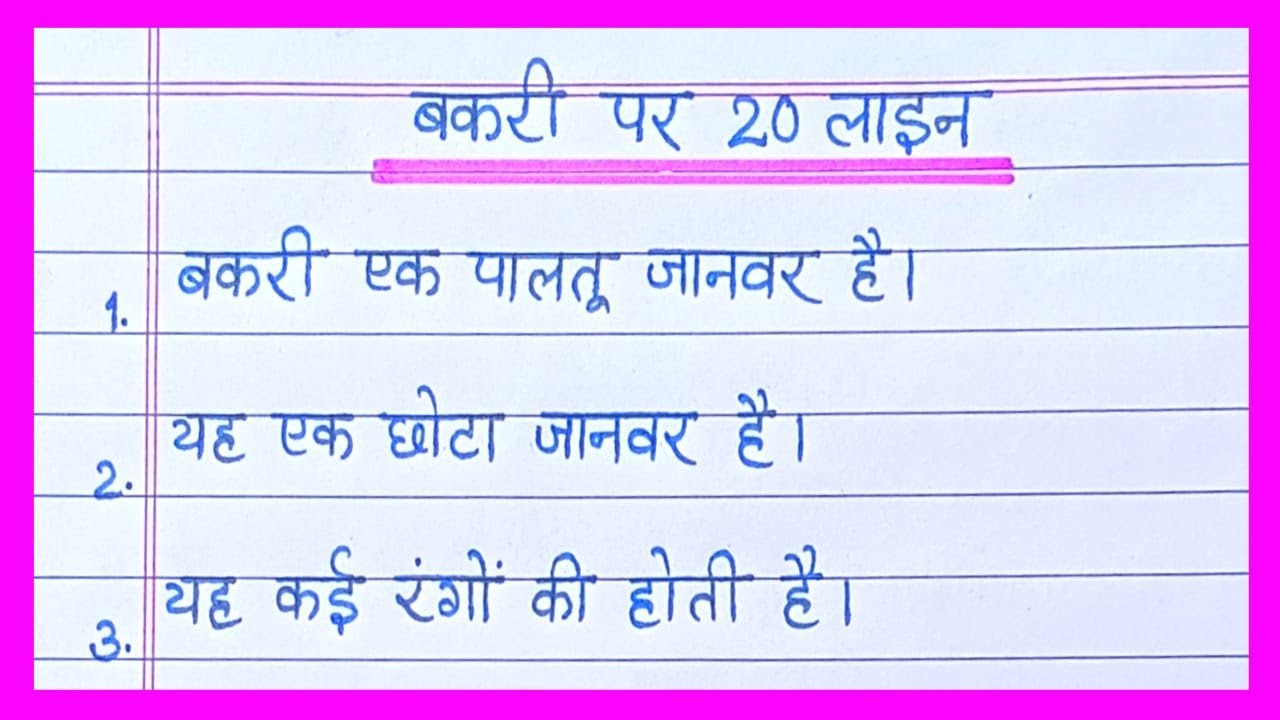 बकरी पर 20 लाइन
1. बकरी एक पालतू जानवर है।
2. यह एक छोटा जानवर है।
3. यह कई रंगों की होती है।